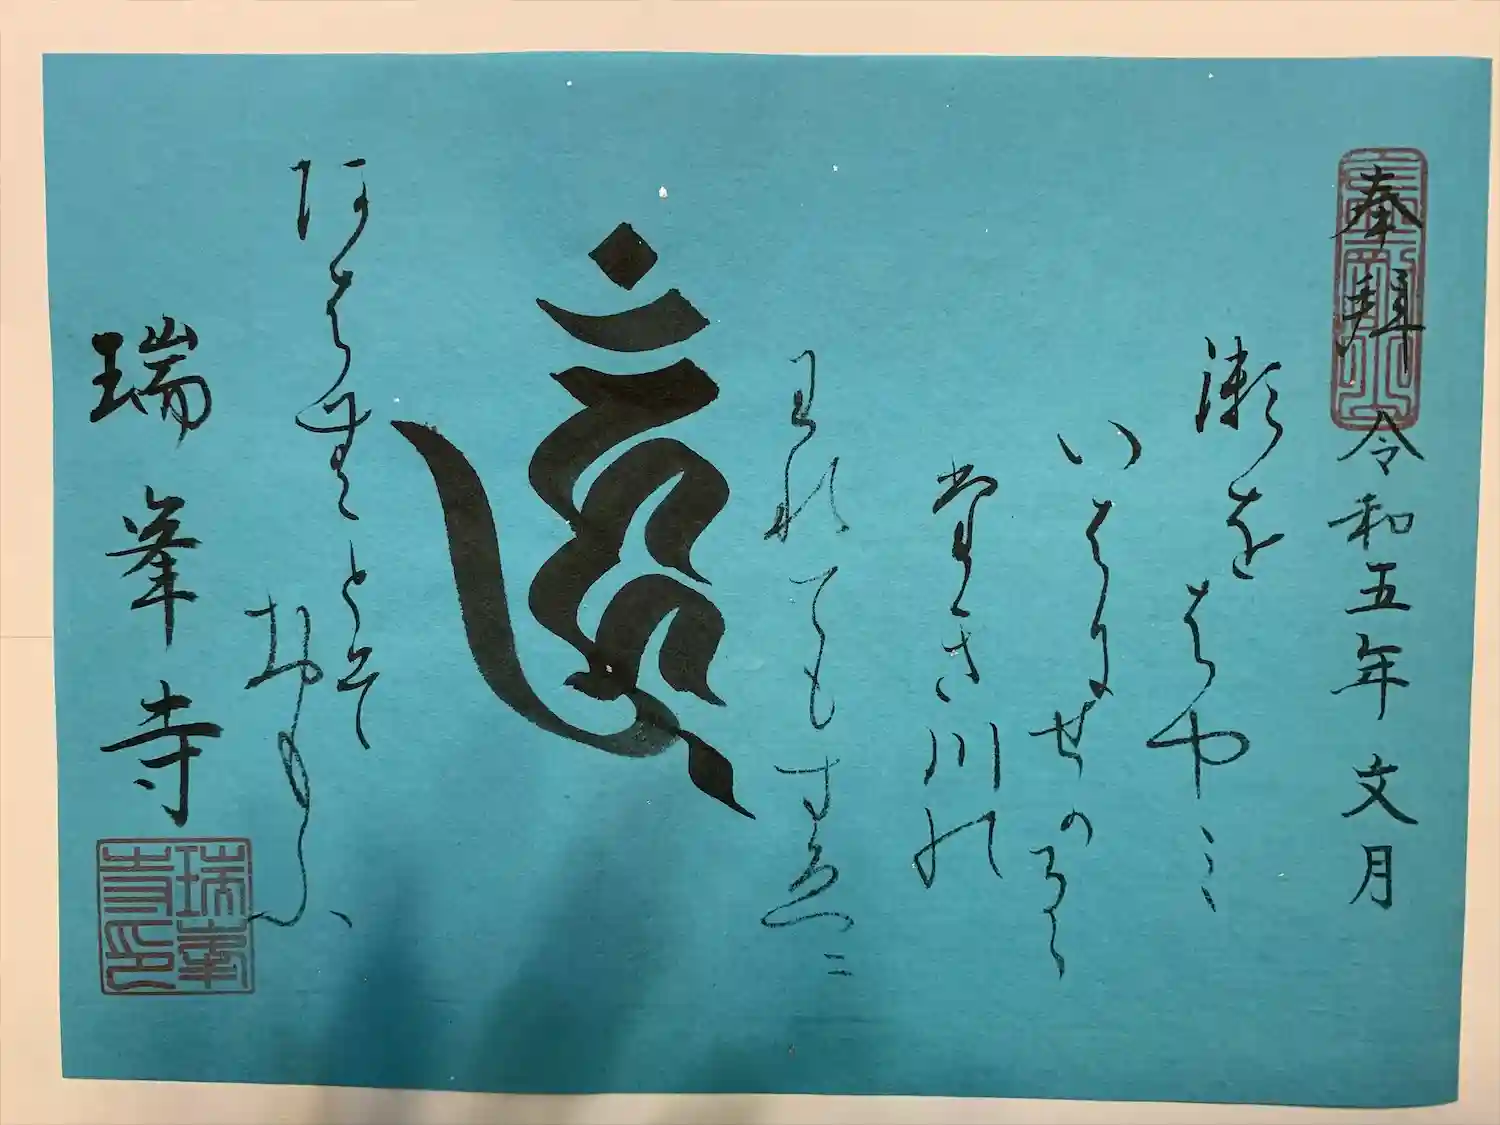 奉拜 令和五年文月
瀬をはやミ
いはにせかるゝ
堂き川の
われてもすゑニ
阿はむとそ
おもふ
瑞峯寺
瑞峯寺印